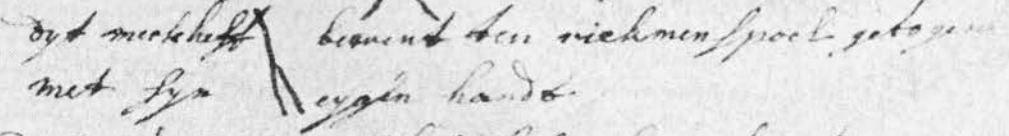 dyt merck heft berent ten riekmenspoel getogen
met syn eygen handt